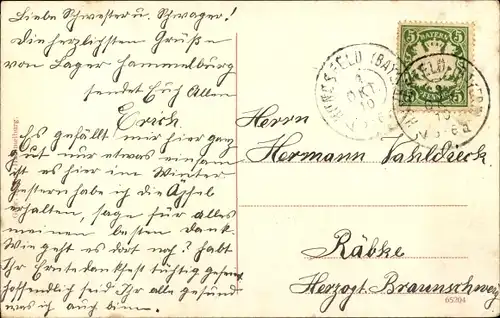 Liebe Schwester u. Schwager!
Die herzlichsten Grüße
von Lager Hammelburg
sendet Euch Allen
Erich
Es gefällt mir hier ganz
gut nur etwas einsam
ist es hier im Winter
Gestern habe ich die Äpfel
erhalten, sage für alles
meinen besten Dank
Wie geht es dort noch? habt
Ihr Erntedankfest tüchtig
hoffendlich seid Ihr alle gesund
was ich auch bin.
BAYERN
5 5
5 5
OKT
10
Herrn
Hermann Vahldieck
Räbke
Herzogt. Braunschweig
65204